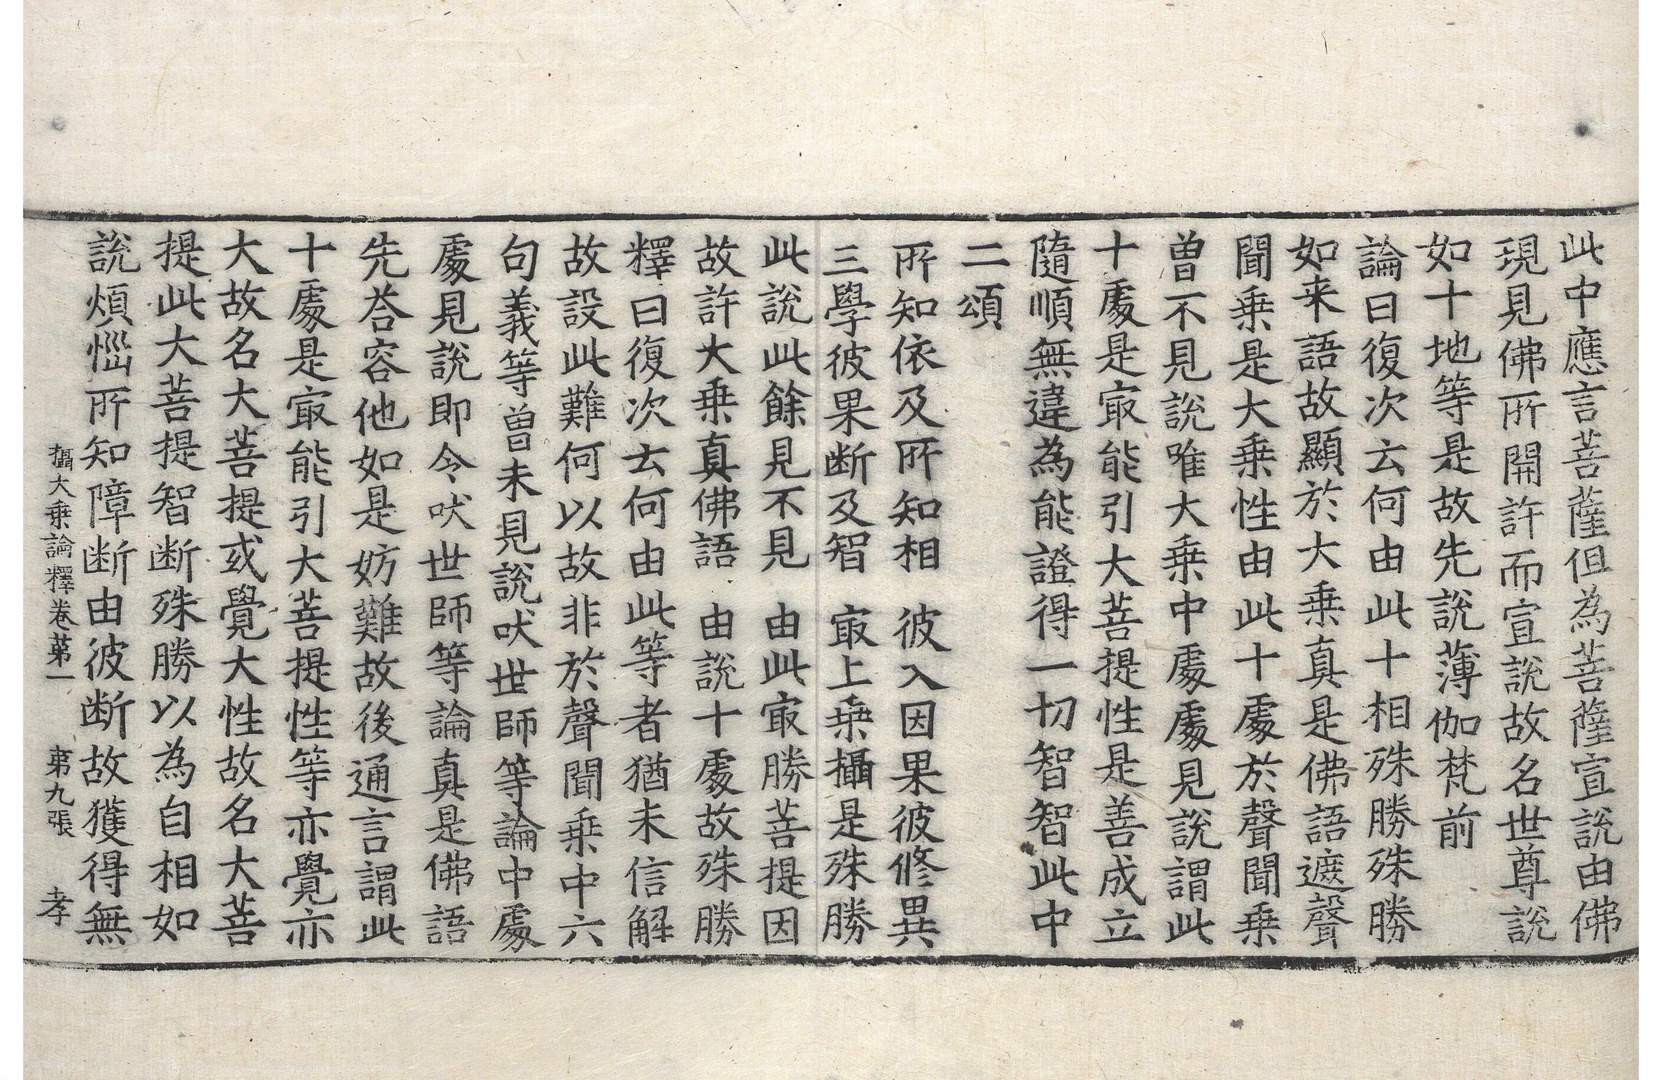 此中應言菩薩但為菩薩宣說由佛
現見佛所開許而宣說故名世尊說
如十地等是故先說薄伽梵前
論曰復次云何由此十相殊勝殊勝
如来語故顯於大乗真是佛語遮聲
聞乗是大乗性由此十處於聲聞乗
曾不見說唯大乗中處處見說謂此
十處是㝡能引大菩提性是善成立
隨順無違為能證得一切智智此中
二頌
所知依及所知相　彼入因果彼修異
三學彼果断及智　㝡上乗攝是殊勝
此說此餘見不見　由此㝡勝菩提因
故許大乗真佛語　由說十處故殊勝
釋曰復次云何由此等者猶未信解
故設此難何以故非於聲聞乗中六
句義等曾未見說吠世師等論中處
處見說即令吠世師等論真是佛語
先荅容他如是妨難故後通言謂此
十處是㝡能引大菩提性等亦覺亦
大故名大菩提或覺大性故名大菩
提此大菩提智断殊勝以為自相如
說煩惱所知障断由彼断故獲得無
攝大乗論釋卷苐一　苐九張　孝